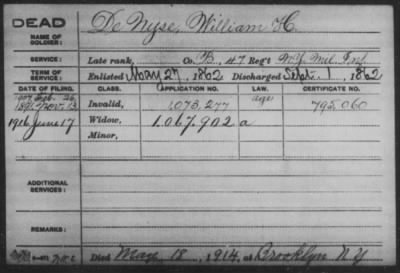 DEAD
De Nyse, William H.
NAME OF
SOLDIER:
SERVICE:
Late rank, Co. B, 47 Reg't N.Y. Mil. Inf.
TERM OF
SERVICE:
Enlisted May 27, 1862 Discharged Sept. 1, 1862
DATE OF FILING. CLASS. APPLICATION NO. LAW. CERTIFICATE NO.
1891 Nov. 13 Invalid, 1.073,277 age 795.060
1916 June 17 Widow, 1.067.902 a
Minor,
ADDITIONAL
SERVICES:
REMARKS:
Died May 18, 1914, at Brooklyn N.Y.